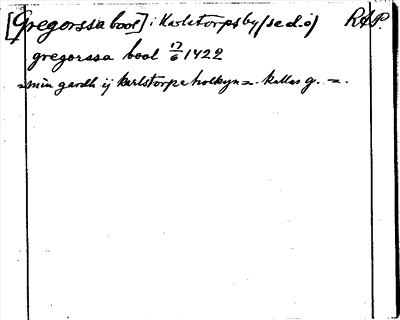 [Gregorssa bool] i Karlstorps by (se d.o) RAP.
gregorssa bool 17/6 1422
"min gardh ij karlstorpe hwlkyn =. kallas g. =.